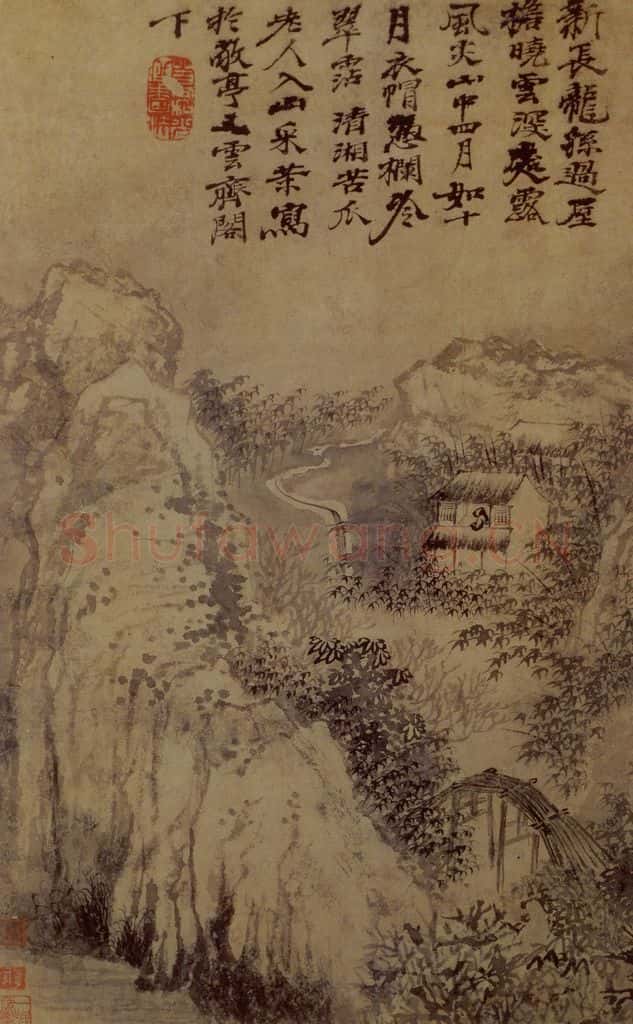 新長龍孫過屋
檐曉雲深處露
風尖山中四月如十
月衣帽憑欄冷
翠沾 清湘苦瓜
老人入山采茶寫
於敬亭之雲齊閣
下
Shufawang.CN